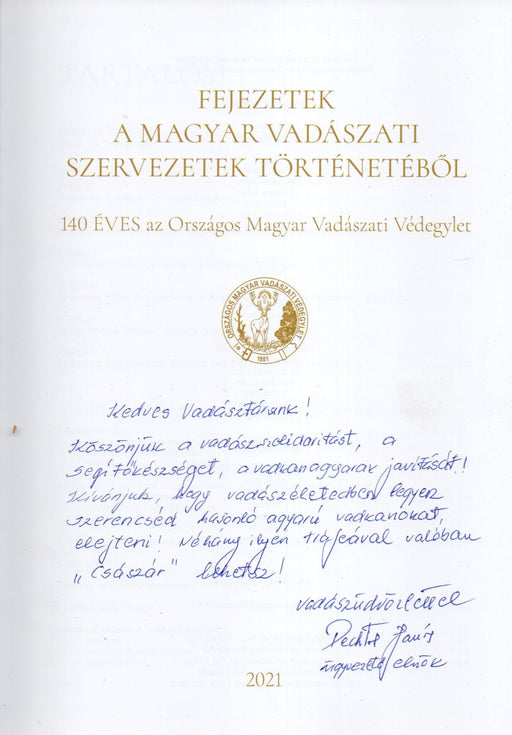 FEJEZETEK
A MAGYAR VADÁSZATI
SZERVEZETEK TÖRTÉNETÉBŐL
140 ÉVES az Országos Magyar Vadászati Védegylet
ORSZÁGOS MAGYAR VADÁSZATI VÉDEGYLET
1881
Kedves Vadásztársunk!
Köszönjük a vadászszolidaritást, a
segítőkészséget, a vadkanagyarak javítását!
Kívánjuk, hogy vadászéletedben legyen
szerencséd hasonló agyarú vadkanokat
elejteni! Néhány ilyen trófeával valóban
„Császár" lehetsz!
vadászüdvözlettel
János
ügyvezető elnök
2021